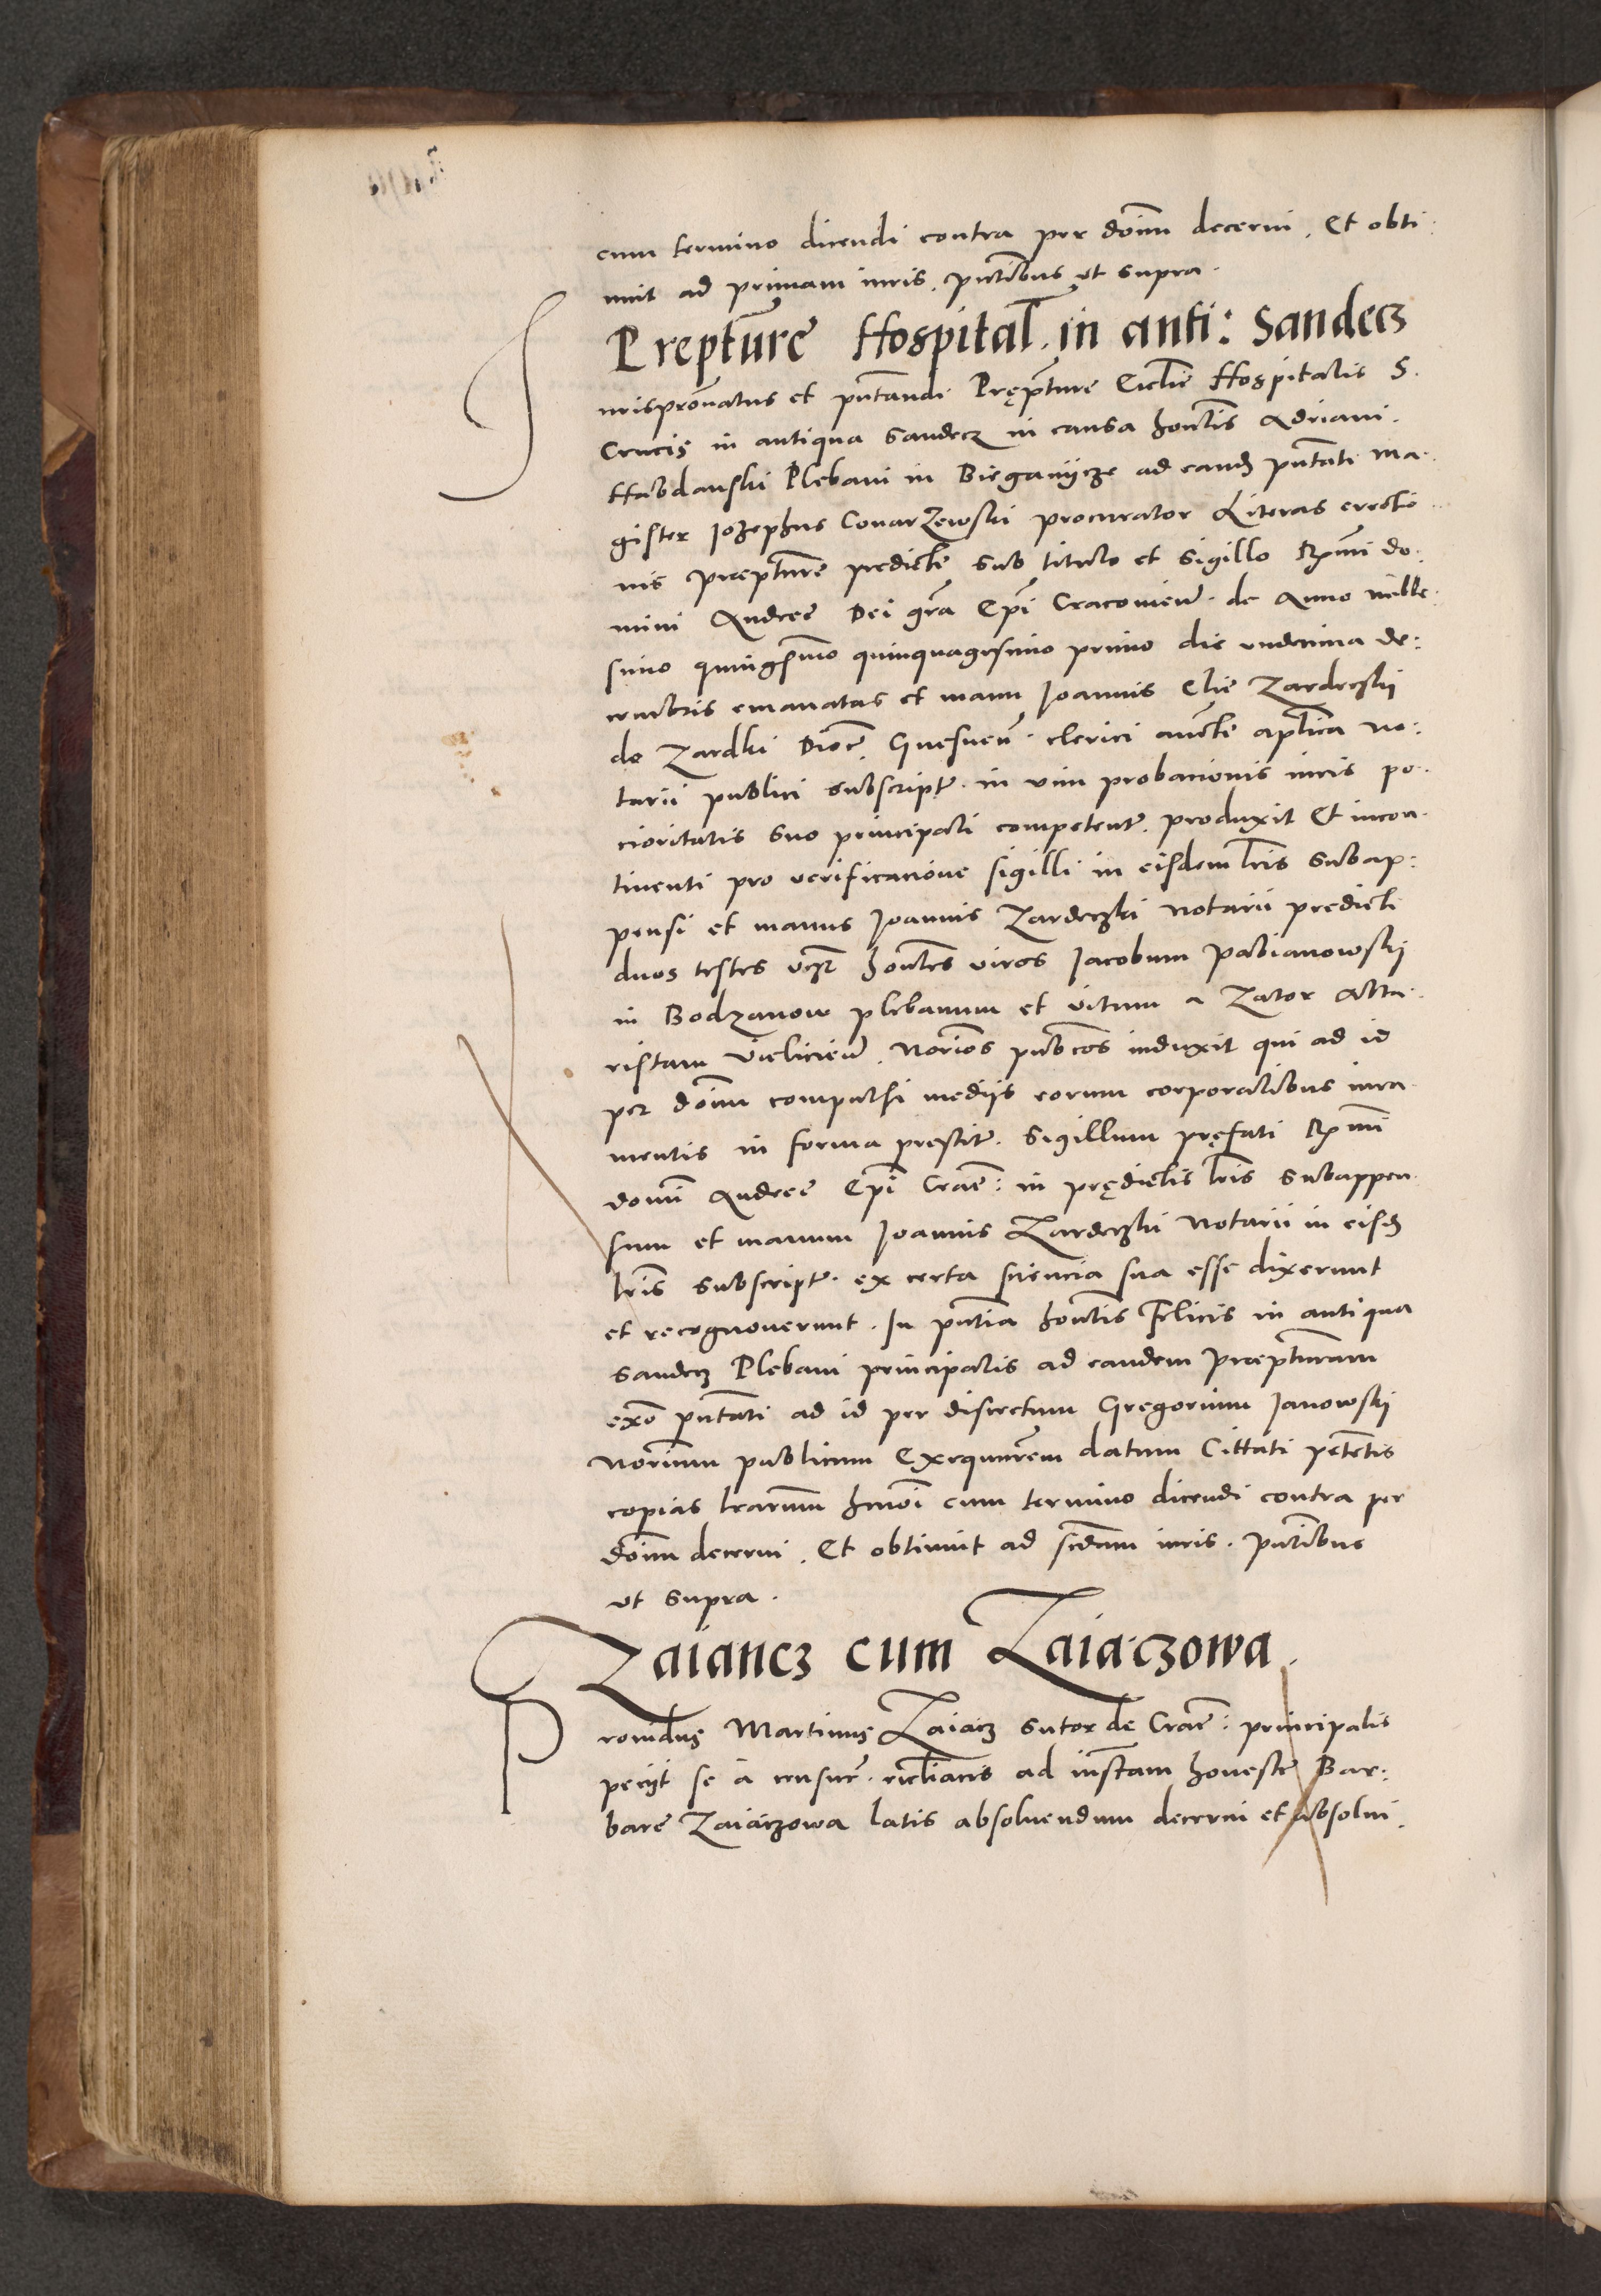 cum termino dicendi contra per dom̄ decerni. Et obti:
nuit ad primam iuris. pn̄tibus ut supra.
Prepture Hospital. in anti: Sandecz
Jurispronatus et pn̄tandi Pręp̄ture Ecclīe Hospitalis S.
Crucis in antiqua Sandecz in causa hon̄tis Adriani.
Habdanski Plebani in Bieganycze ad eand pn̄tati Ma.
gister Iozephus Conarzewski procurator Literas erectio
nis prepture predicte sub titulo et sigillo Rmi do.
mini Andree Dei grā Epī Cracovien. de Anno mille.
simo quingmo quinquagesimo primo die undecima de:
cembris emanatas et manu Joannis Elie Zardeczki
de Zardki Dioc. Gnesnen. clerici aucte aplica no:
tarii publici subscript. in vim probacionis iuris po.
cioritatis suo principali competent. produxit Et incon.
tinenti pro verificacione sigilli in eisdem lris subap:
pensi et manus Joannis Zardeczki notarii predicti
duos testes vczt hon̄tes viros Jacobum Pabianowskj
in Bodzanow plebanum et Vitum a Zator Alta.
ristam Vielicien. Norios pubcos induxit qui ad id
per dom̄ compulsi mediis eorum corporalibus iura.
mentis in forma prestit. sigillum pręfati Rmi
domi Andree Epī Crac: in prędictis lris subappen.
sum et manum Joannis Zardeczki notarii in eisd
lris subscript. ex certa sciencia sua esse dixerunt
et recognoverunt. In pn̄tia hon̄tis Felicis in antiqua
Sandecz Plebani principalis ad eandem prepturam
exo pn̄tati ad id per discretum Gregorium Janowskj
Norium publicum Exequutem datum Cittati petētis
copias lrarum hmoi cum termino dicendi contra per
dom̄ decerni. Et obtinuit ad scdam iuris. pn̄tibus
ut supra.
Zaiancz cum Zaiączowa.
Providus Martinus Zaiącz sutor de Crac: principalis
peciit se a censur. ecclīacis ad instam honeste Bar:
bare Zaiączowa latis absoluendum decerni et absolui.